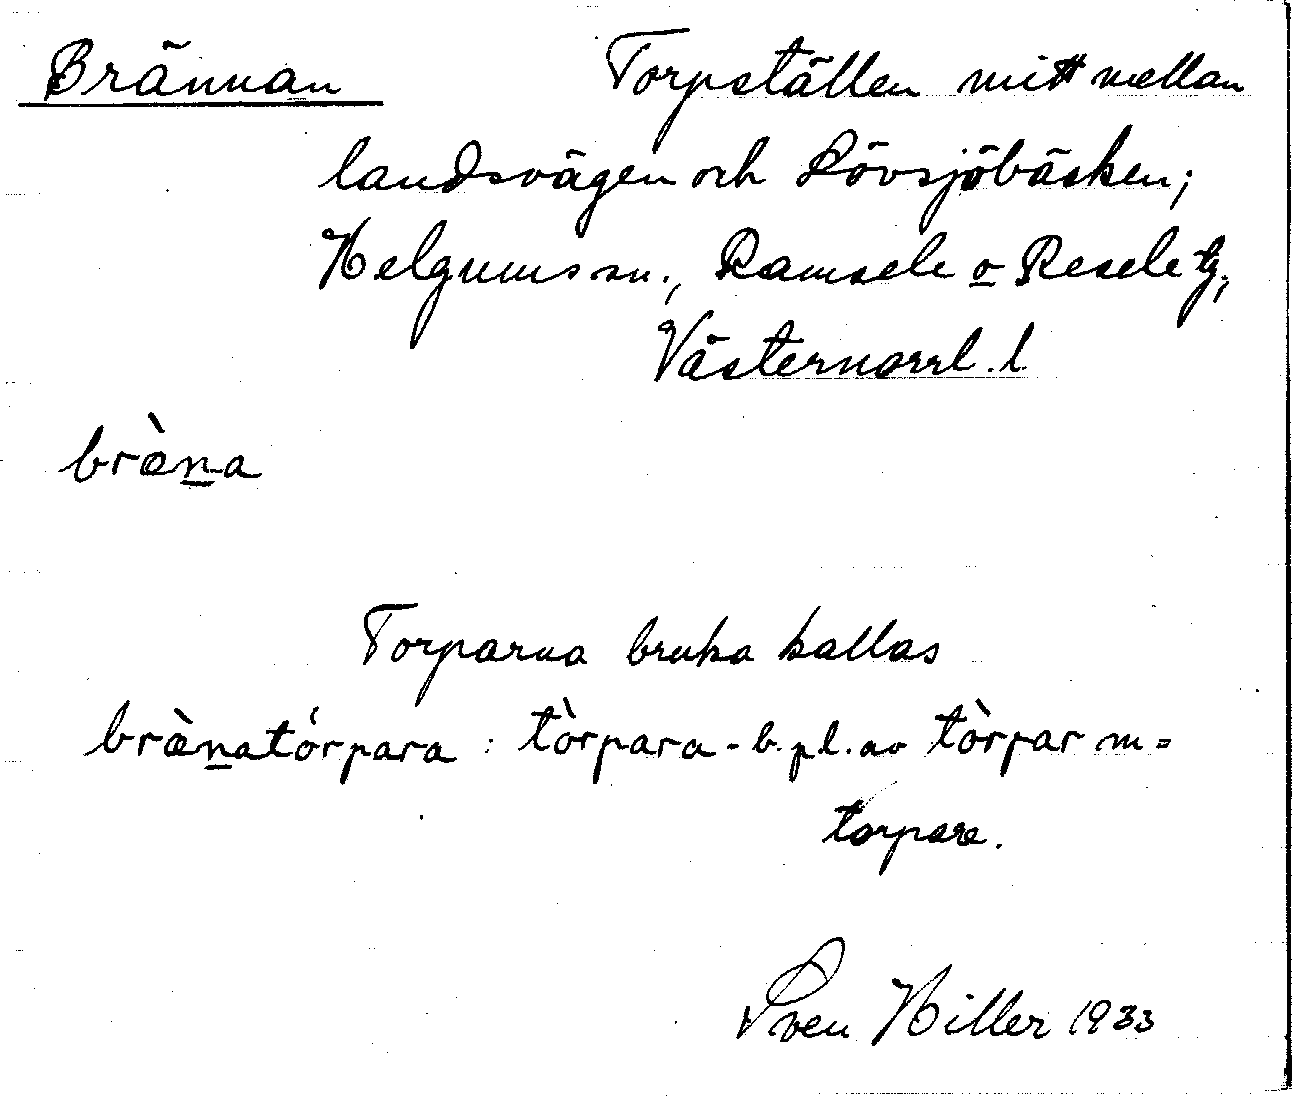 Brännan Torpställen mitt mellan
landsvägen och Lövsjöbäcken;
Helgums sn., Ramsele o Resele tg,
Västernorrl. l
bràn̲a
Torparna bruka kallas
bràn̲atórpara : tòrpara - b. pl. av tòrpar m =
torpare.
Sven Hiller 1933